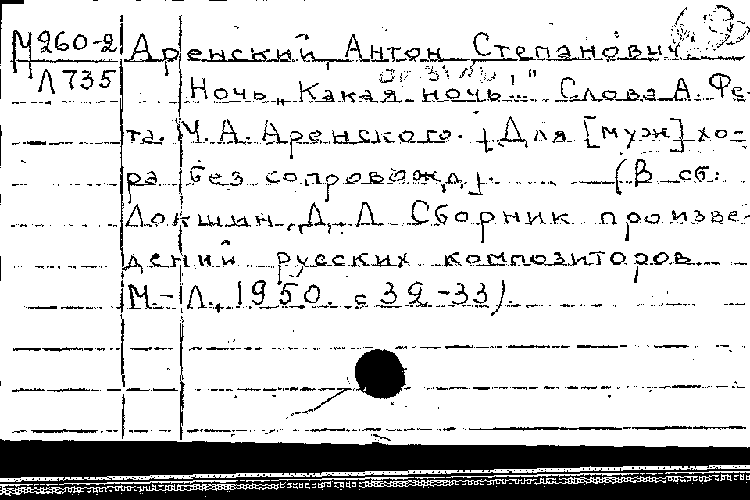 М260-2 Аренский, Антон Степанович.
Л735 Ночь „Какая ночь!.." Слова А. Фе-
та. М. А. Аренского. [Для [муж] хо-
ра без сопровожд.]. (В сб:
Локшин, Д. Л Сборник произве-
дений русских композиторов
М.-Л., 1950. с 32-33).